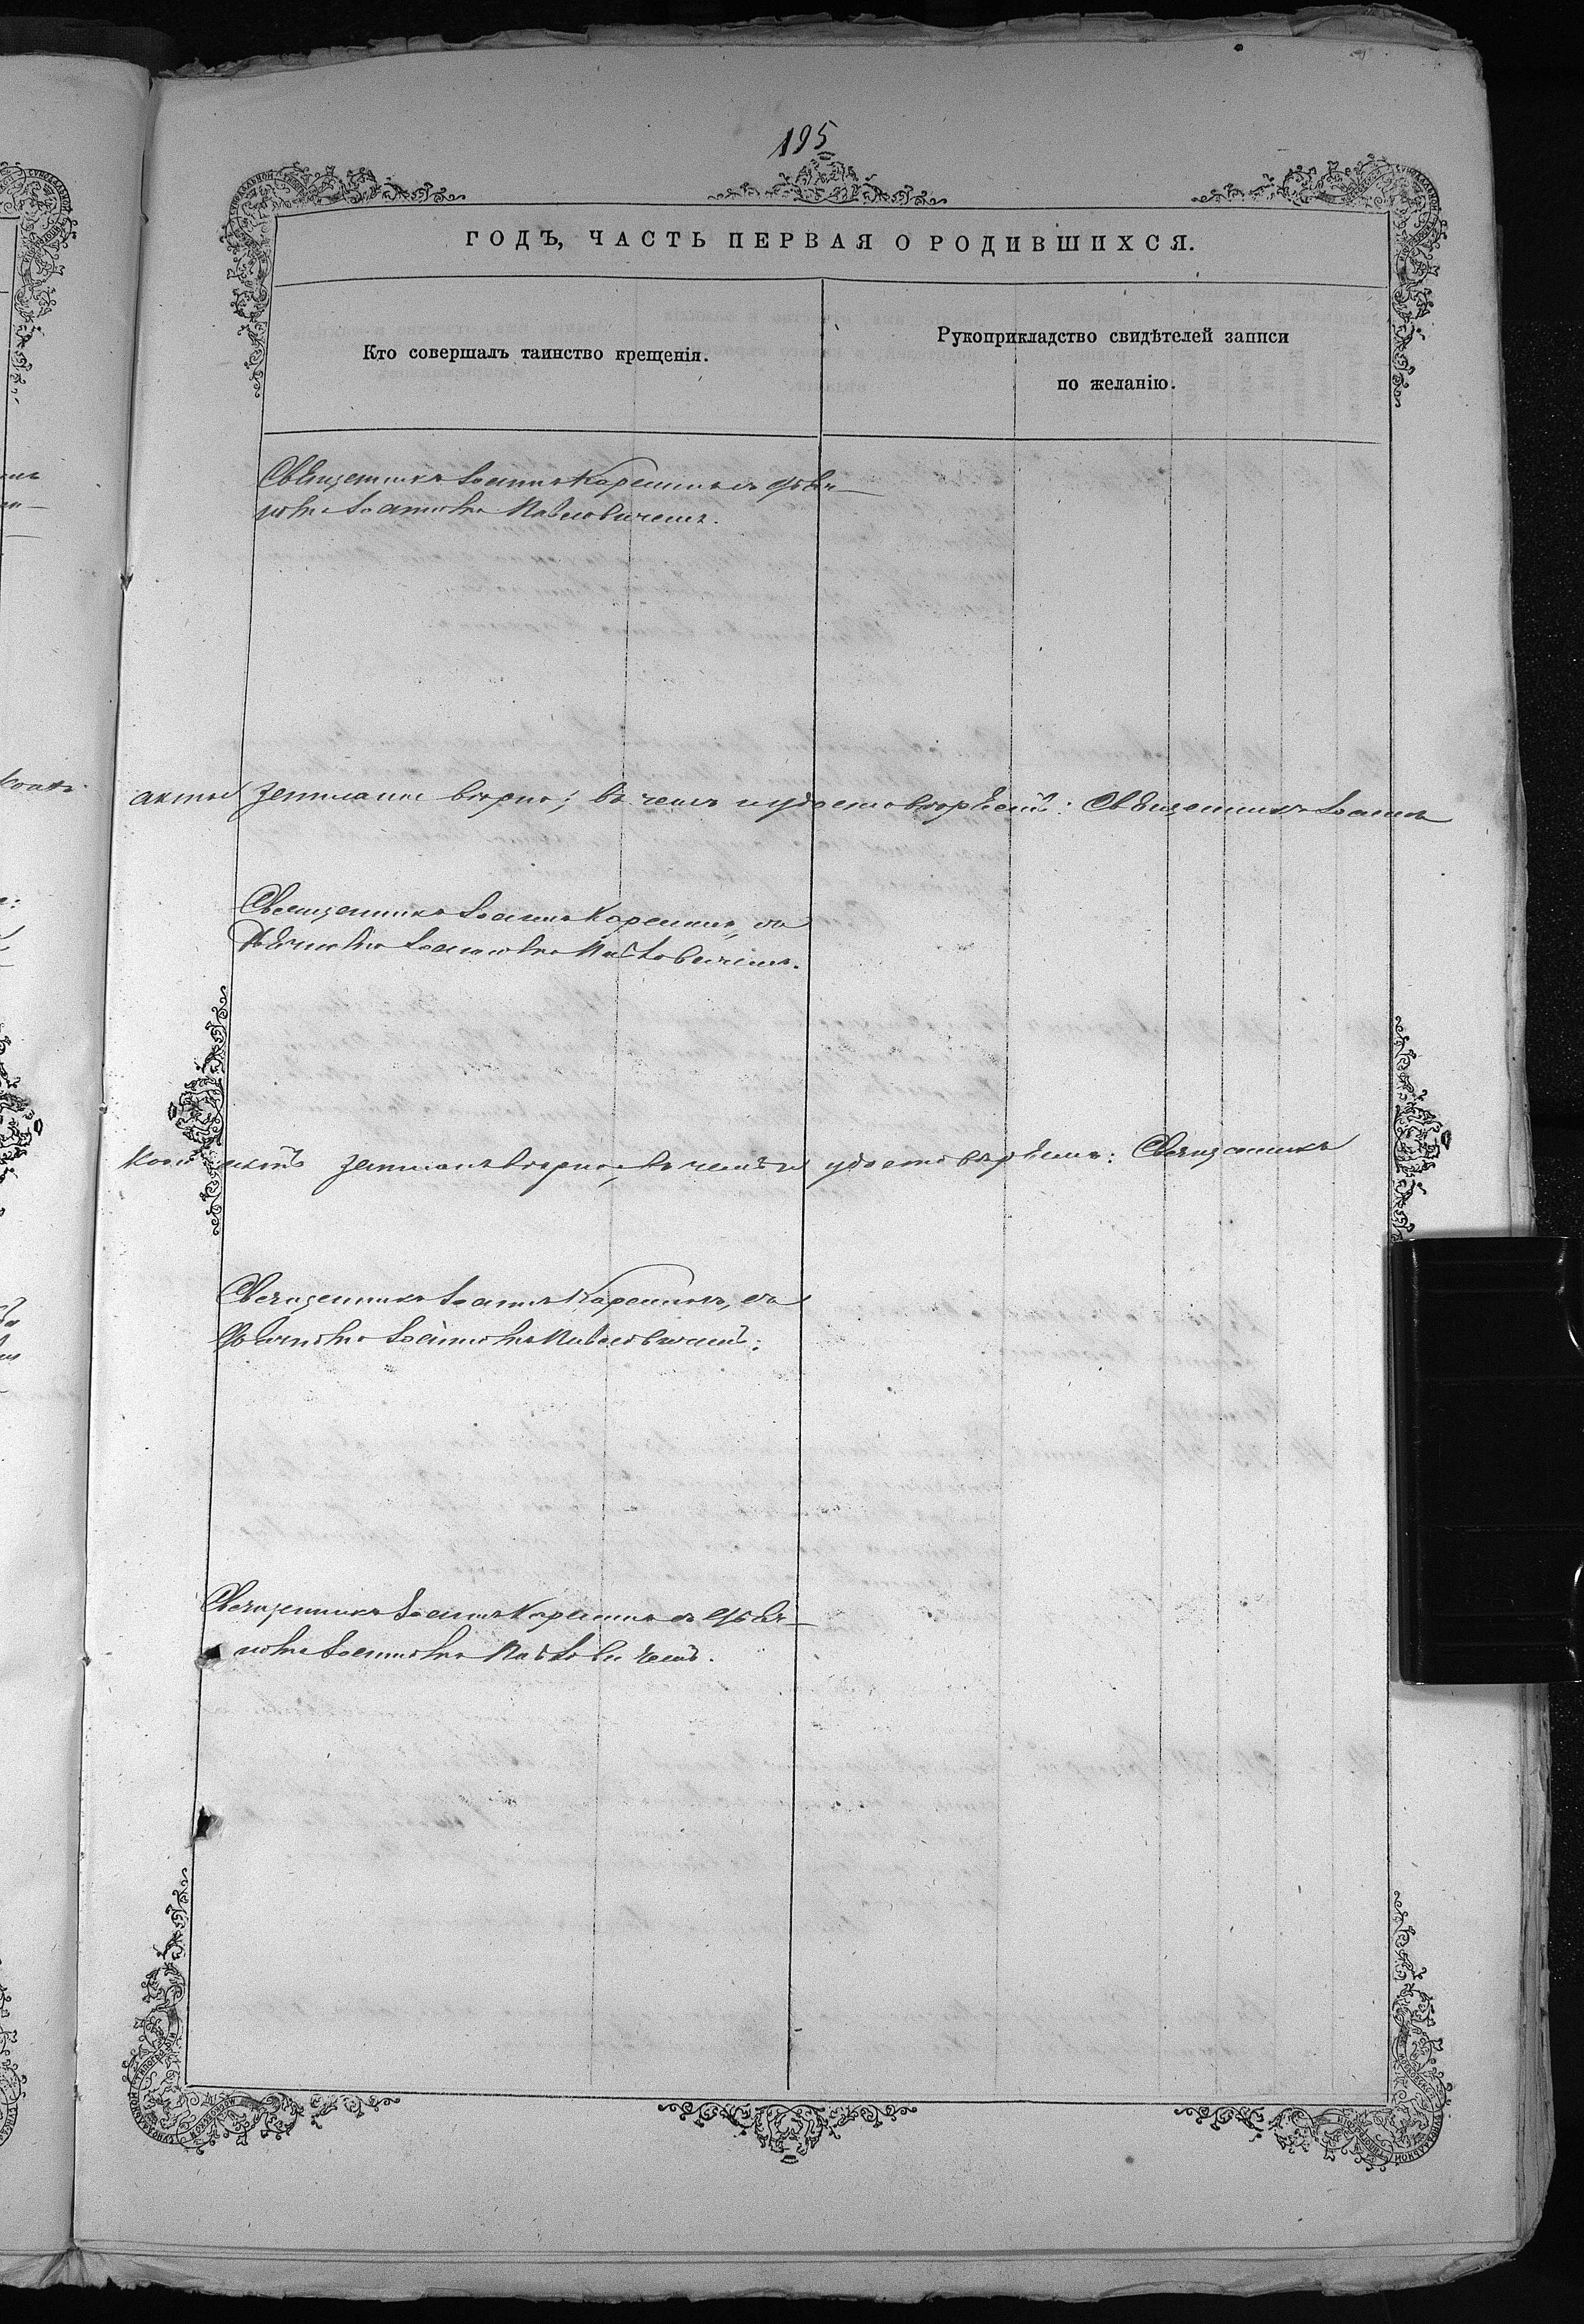 195
ГОДЪ, ЧАСТЬ ПЕРВАЯ О РОДИВШИХСЯ.
Кто совершалъ таинство крещенія.
Рукоприкладство свидѣтелей записи
по желанію.
Священникъ Іоаннъ Карелинъ съ дьяч-
комъ Іоанномъ Павловичемъ.
актъ записанъ вѣрно; въ чемъ и удостовѣряемъ: Священникъ Іоаннъ
Священникъ Іоаннъ Карелинъ, съ
дьячкомъ Іоанномъ Павловичемъ.
актъ записанъ вѣрно, въ чемъ и удостовѣряемъ: Священникъ
Священникъ Іоаннъ Карелинъ, съ
дьячкомъ Іоанномъ Павловичемъ.
Священникъ Іоаннъ Карелинъ съ дьяч-
комъ Іоанномъ Павловичемъ.